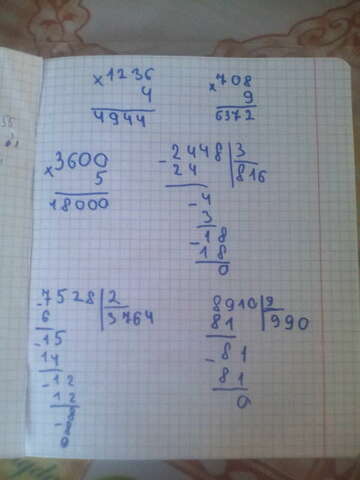 ×1236
4
4944
×708
9
6372
×3600
5
18000
-2448|3
24 816
-4
3
-18
18
0
-7528|2
6 3764
-15
14
-12
12
8910|9
81 990
-81
81
0